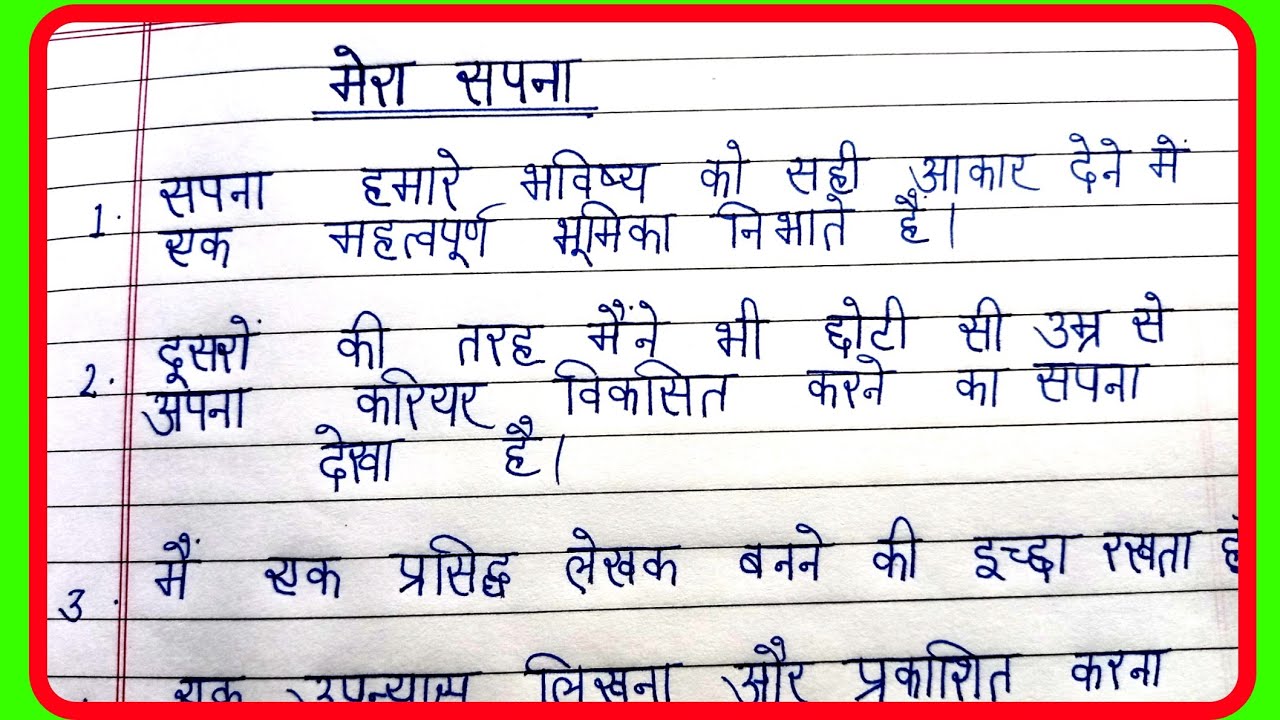 मेरा सपना
सपना हमारे भविष्य को सही आकार देने में
1. एक महत्वपूर्ण भूमिका निभाते हैं।
दूसरों की तरह मैंने भी छोटी सी उम्र से
2. अपना करियर विकसित करने का सपना
देखा है।
मैं एक प्रसिद्ध लेखक बनने की इच्छा रखता
3.
एक उपन्यास लिखना और प्रकाशित करना